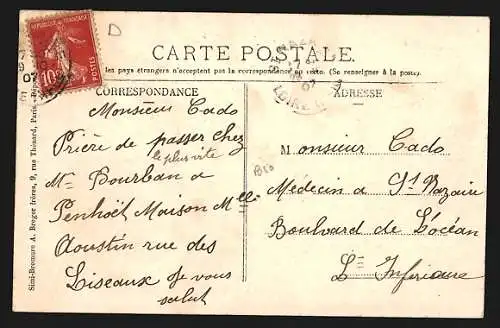 D
REPUBLIQUE FRANÇAISE
10
POSTES
07
CARTE POSTALE
les pays étrangers n'acceptent pas la correspondance au recto. (Se renseigner à la poste.)
CORRESPONDANCE
Monsieur Cado
Prière de passer chez
le plus vite
Me Bourban a
Penhoët Maison Melle
Aoustin rue des
Liseaux Je vous
salut
Simi-Bromure A. Breger frères, 9, rue Thénard, Paris
ADRESSE
LOIRE
07
Monsieur Cado
Médecin a St Nazaire
Boulvard de L'océan
Lre Inférieure